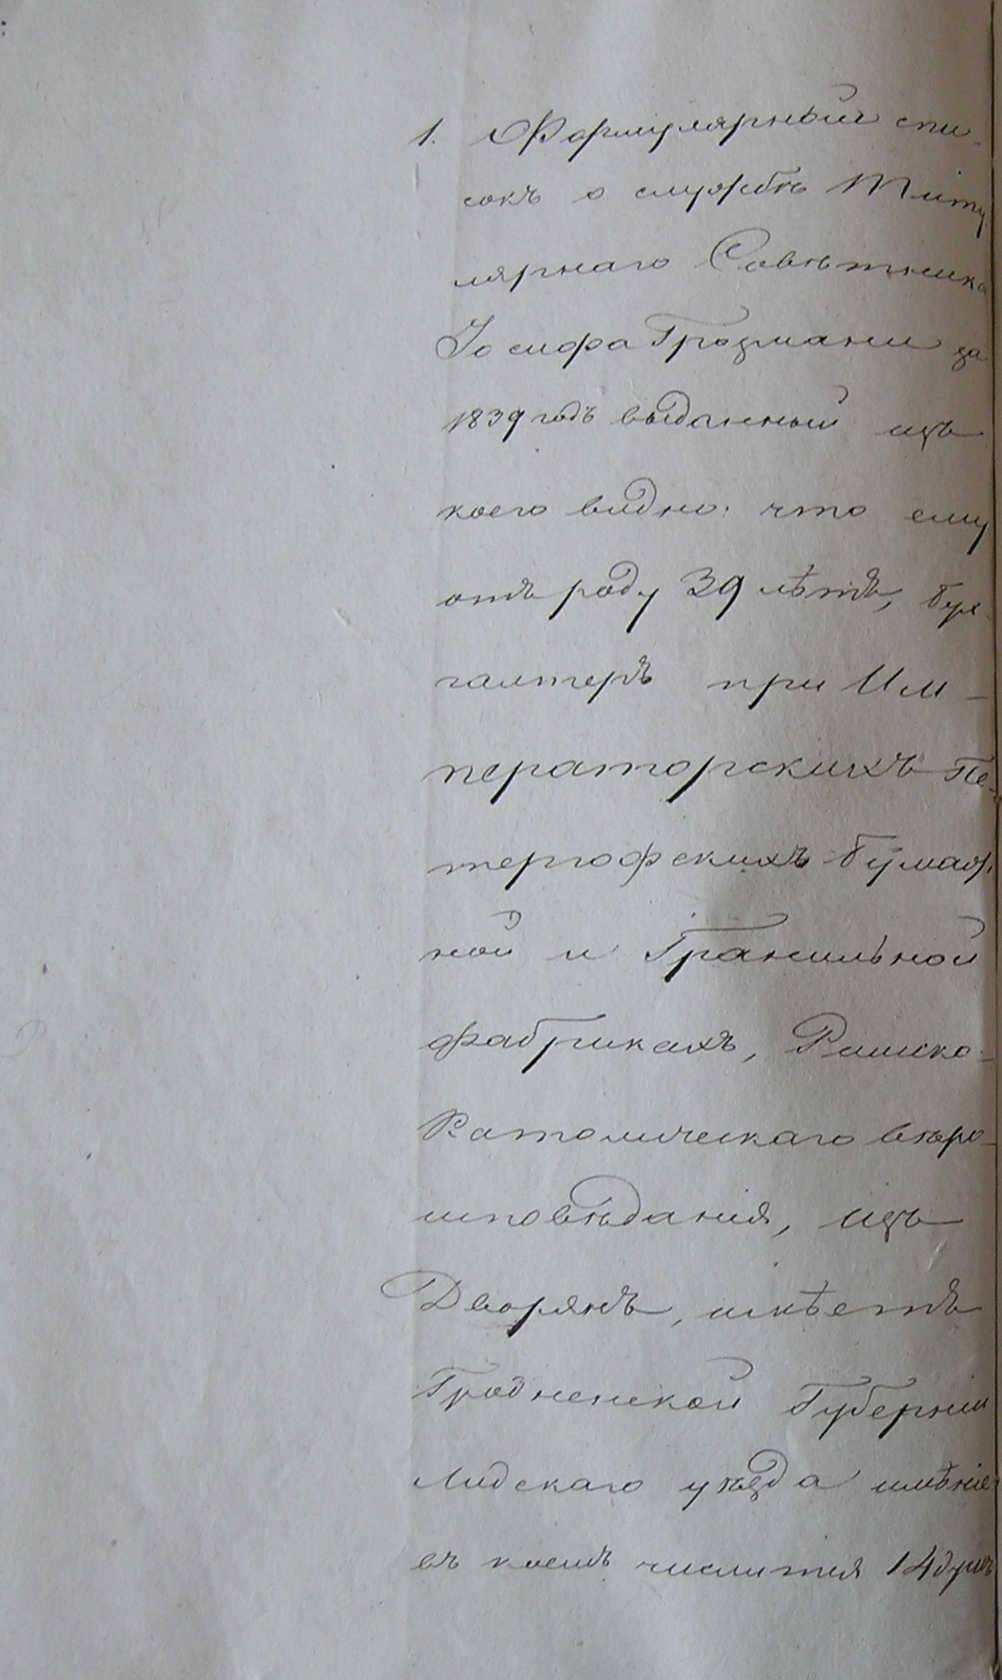 1. Формулярный спи-
сокъ о службѣ Титу
лярнаго Совѣтника
Іосифа Грозмани за
1839 годъ выданный изъ
коего видно: что ему
отъ роду 39 лѣтъ, бух-
галтеръ при Им-
ператорскихъ Пе-
тергофскихъ бумаж-
ной и Гранильной
фабрикахъ, Римско-
Католическаго вѣро-
исповѣданія, изъ
Дворянъ, имѣетъ
Гродненской Губерніи
Лидскаго уѣзда имѣніе
въ коемъ числится 14 душъ